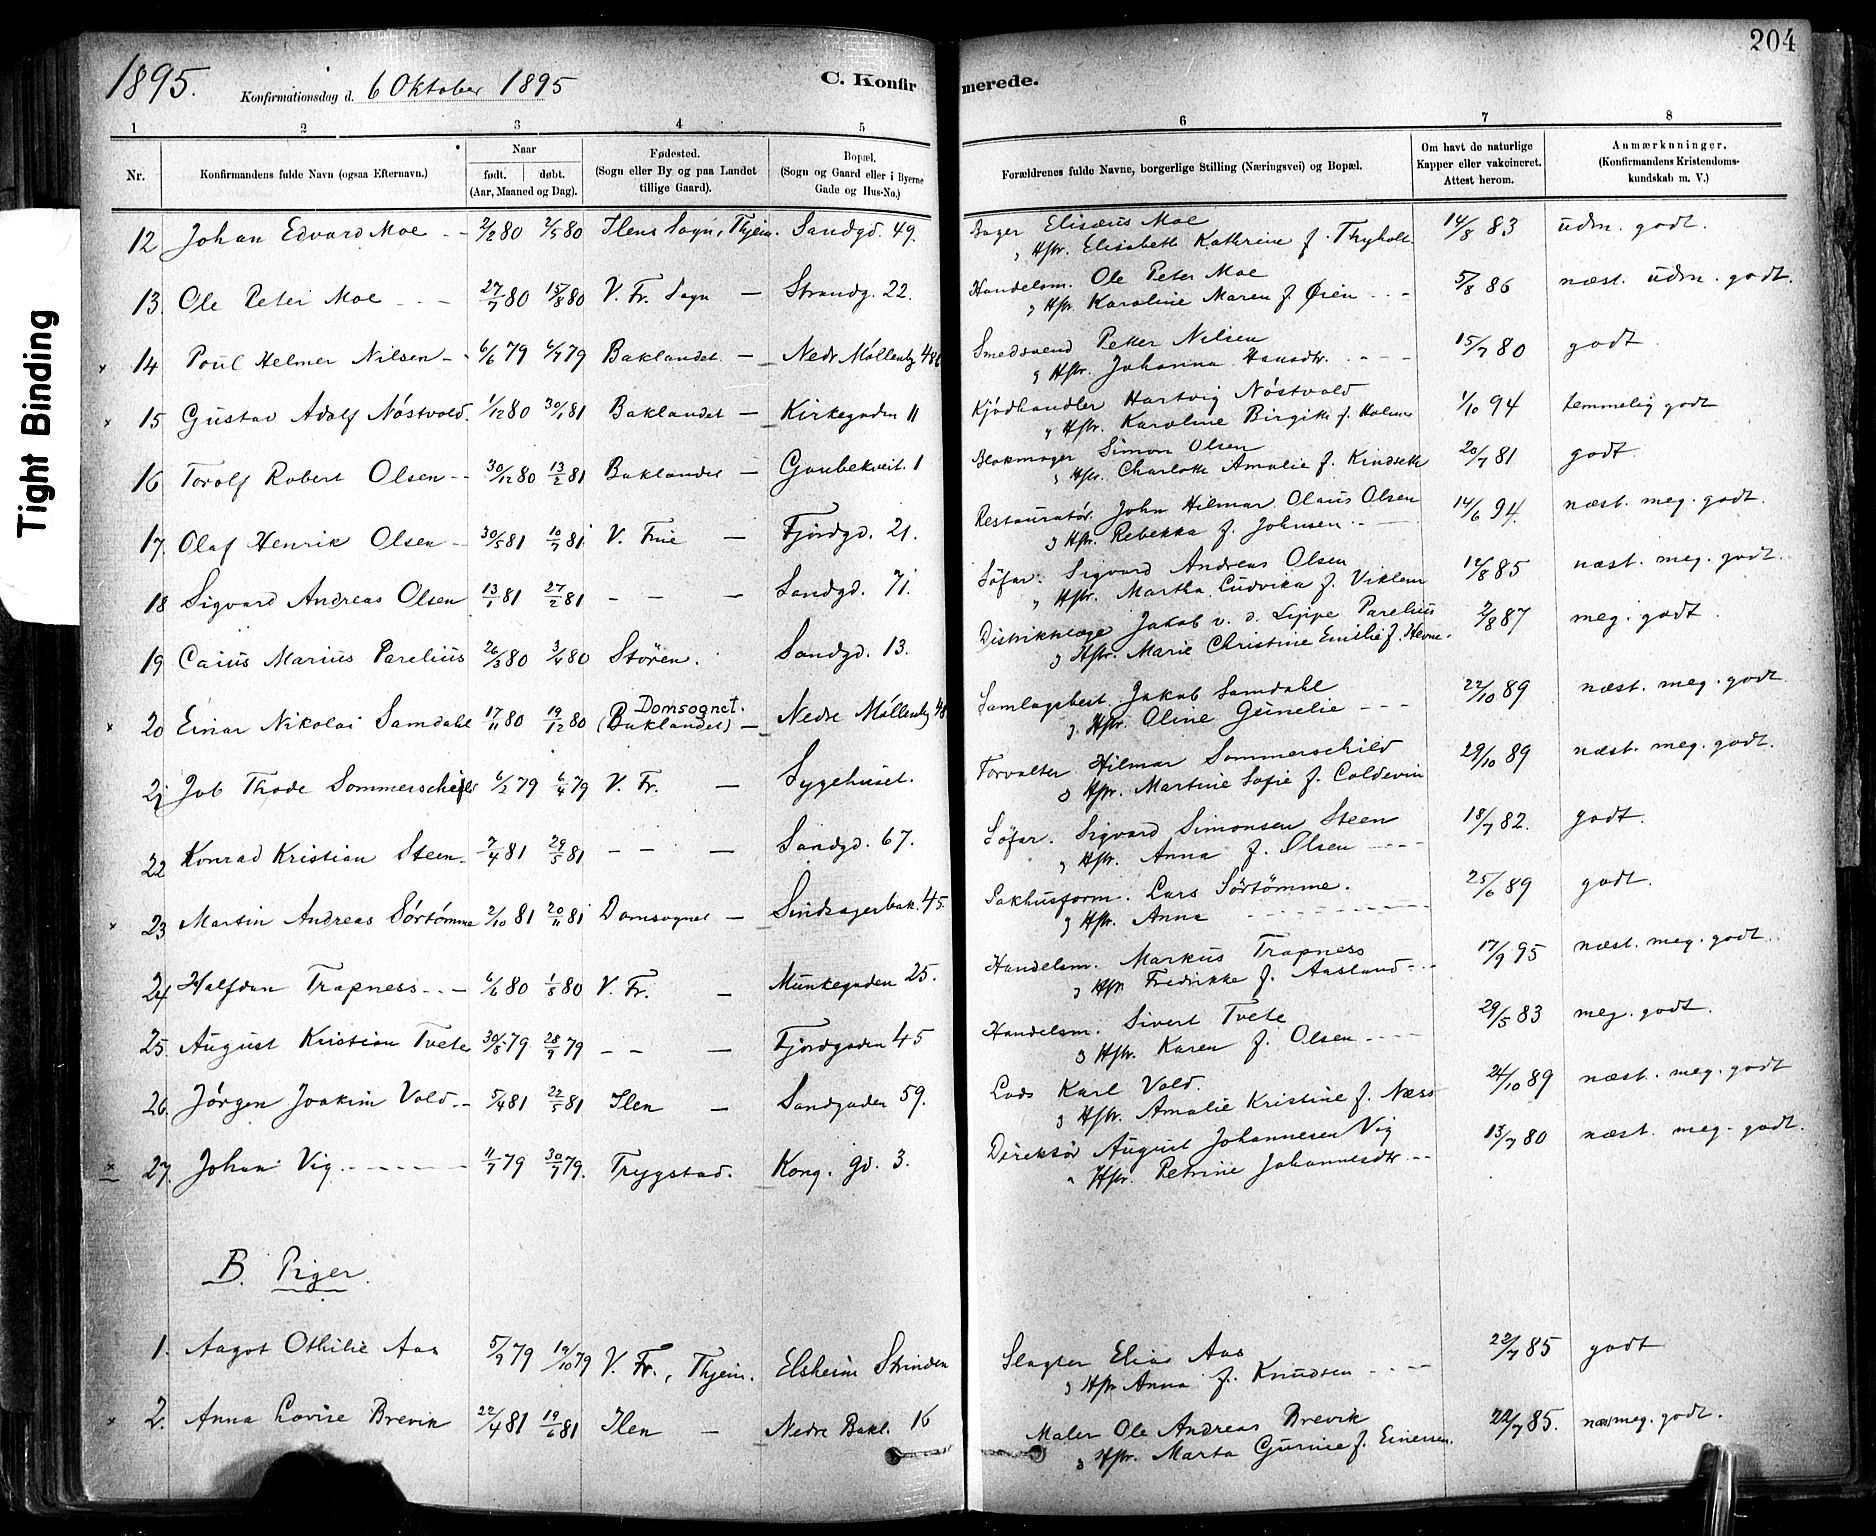 204
1895. Konfirmationsdag d. 6 Oktober 1895 C. Konfirmerede.
1 2 3 4 5 6 7 8
Nr. Konfirmandens fulde Navn (ogsaa Efternavn.) Naar født. døbt. (Aar, Maaned og Dag). Fødested. (Sogn eller By og paa Landet tillige Gaard). Bopæl. (Sogn og Gaard eller i Byerne Gade og Hus-No.) Forældrenes fulde Navne, borgerlige Stilling (Næringsvei) og Bopæl. Om havt de naturlige Kapper eller vakcineret. Attest herom. Anmærkninger. (Konfirmandens Kristendomskundskab m. V.)
12 Johan Edvard Moe - - 2/2 80 2/5 80 Ilens Sogn, Thjem. Sandgd. 49. Bager Elisæus Moe 14/8 83 udm. godt.
" Hstr. Elisabeth Kathrine f. Thyholt.
13. Ole Peter Moe - - - 27/7 80 15/8 80 V. Fr. Sogn — Strandg. 22. Handelsm. Ole Peter Moe 5/8 86 næst. udm. godt.
" Hstr. Karoline Maren f. Øien - - -
× 14 Poul Helmer Nilsen - - 6/6 79 6/7 79 Baklandet — Nedr Møllenbg 48 Smedsvend Petter Nilsen 15/7 80 godt.
" Hstr. Johanna Hansdtr. - - -
× 15 Gustav Adolf Nøstvold. 1/12 80 30/1 81 Baklandet — Kirkegaden 11 Kjødhandler Hartvig Nøstvold 1/10 94 temmelig godt
" Hstr. Karoline Birgitte f. Holmer
16 Torolf Robert Olsen - - 30/12 80 13/2 81 Baklandet — Gaubekveit. 1 Blokmager Simon Olsen 20/7 81 godt
" Hstr. Charlotte Amalie f. Kindseth
17. Olaf Henrik Olsen - 30/5 81 10/7 81 V. Frue — Fjordgd. 21. Restauratør John Hilmar Olaus Olsen 14/6 94. næst. meg. godt.
" Hstr. Rebekka f. Johnsen. - -
18 Sigvard Andreas Olsen 13/1 81 27/2 81 - - — Sandgd. 71. Søfar. Sigvard Andreas Olsen 12/8 85 næst. meg. godt.
" Hstr. Martha Ludvika f. Viklem
19 Caius Marius Parelius 26/3 80 3/4 80 Støren. Sandgd. 13. Distriktslæge Jakob v. d. Lippe Parelius 2/8 87 meg. godt.
" Hstr. Marie Christine Emilie f. Hevne.
× 20 Einar Nikolai Samdahl 17/11 80 19/12 80 Domsognet. (Baklandet) — Nedre Møllenbg 48 Samlagsbest. Jakob Samdahl 22/10 89 næst. meg. godt
" Hstr. Oline Gunelie - - -
21 Job Thode Sommerschield 6/2 79 6/4 79 V. Fr. — Sygehuset. Forvalter Hilmar Sommerschild 29/10 89 næst. meg. godt.
" Hstr. Martine Sofie f. Coldevin
22 Konrad Kristian Steen - 2/4 81 29/5 81 - - — Sandgd. 67. Søfar. Sigvard Simonsen Steen 18/7 82. godt.
" Hstr. Anna f. Olsen - - - -
× 23 Martin Andreas Sørtømme 2/10 81 20/11 81 Domsognet — Sindsagerbak. 45. Pakhusform. Lars Sørtømme. 25/6 89 godt.
" Hstr. Anna - - - - -
24 Halfdan Trapness - - - 6/6 80 1/8 80 V. Fr. — Munkegaden 25. Handelsm. Markus Trapness 17/9 95 næst. meg. godt.
" Hstr Fredrikke f. Aasland - - -
25. August Kristian Tvete 30/8 79 28/9 79 - - — Fjordgaden 45 Handelsm. Sivert Tvete 29/5 83 meg. godt.
" Hstr. Karen f. Olsen - - - -
26 Jørgen Joakim Vold - - 5/4 81 22/5 81 Ilen — Sandgaden 59. Lods Karl Vold. 24/10 89 næst. meg. godt
" Hstr. Amalie Kristine f. Næss
× 27. Johan Vig. - - - - 11/7 79 30/7 79. Trygstad. Kong. gd. 3. Direktør August Johannesen Vig 13/7 80 næst. meg. godt.
" Hstr. Petrine Johannesdtr - -
B. Piger.
1. Aagot Othilie Aas 5/9 79 19/10 79 V. Fr., Thjem. Elsheim Strinden Slagter Elias Aas 22/7 85 godt
" Hstr Anna f. Knudsen - - -
× 2. Anna Lovise Brevik 22/4 81 19/6 81 Ilen — Nedre Bakl. 16 Maler Ole Andreas Brevik 22/7 85. næs meg. godt.
" Hstr. Marta Gurine f. Einersen.
Tight Binding